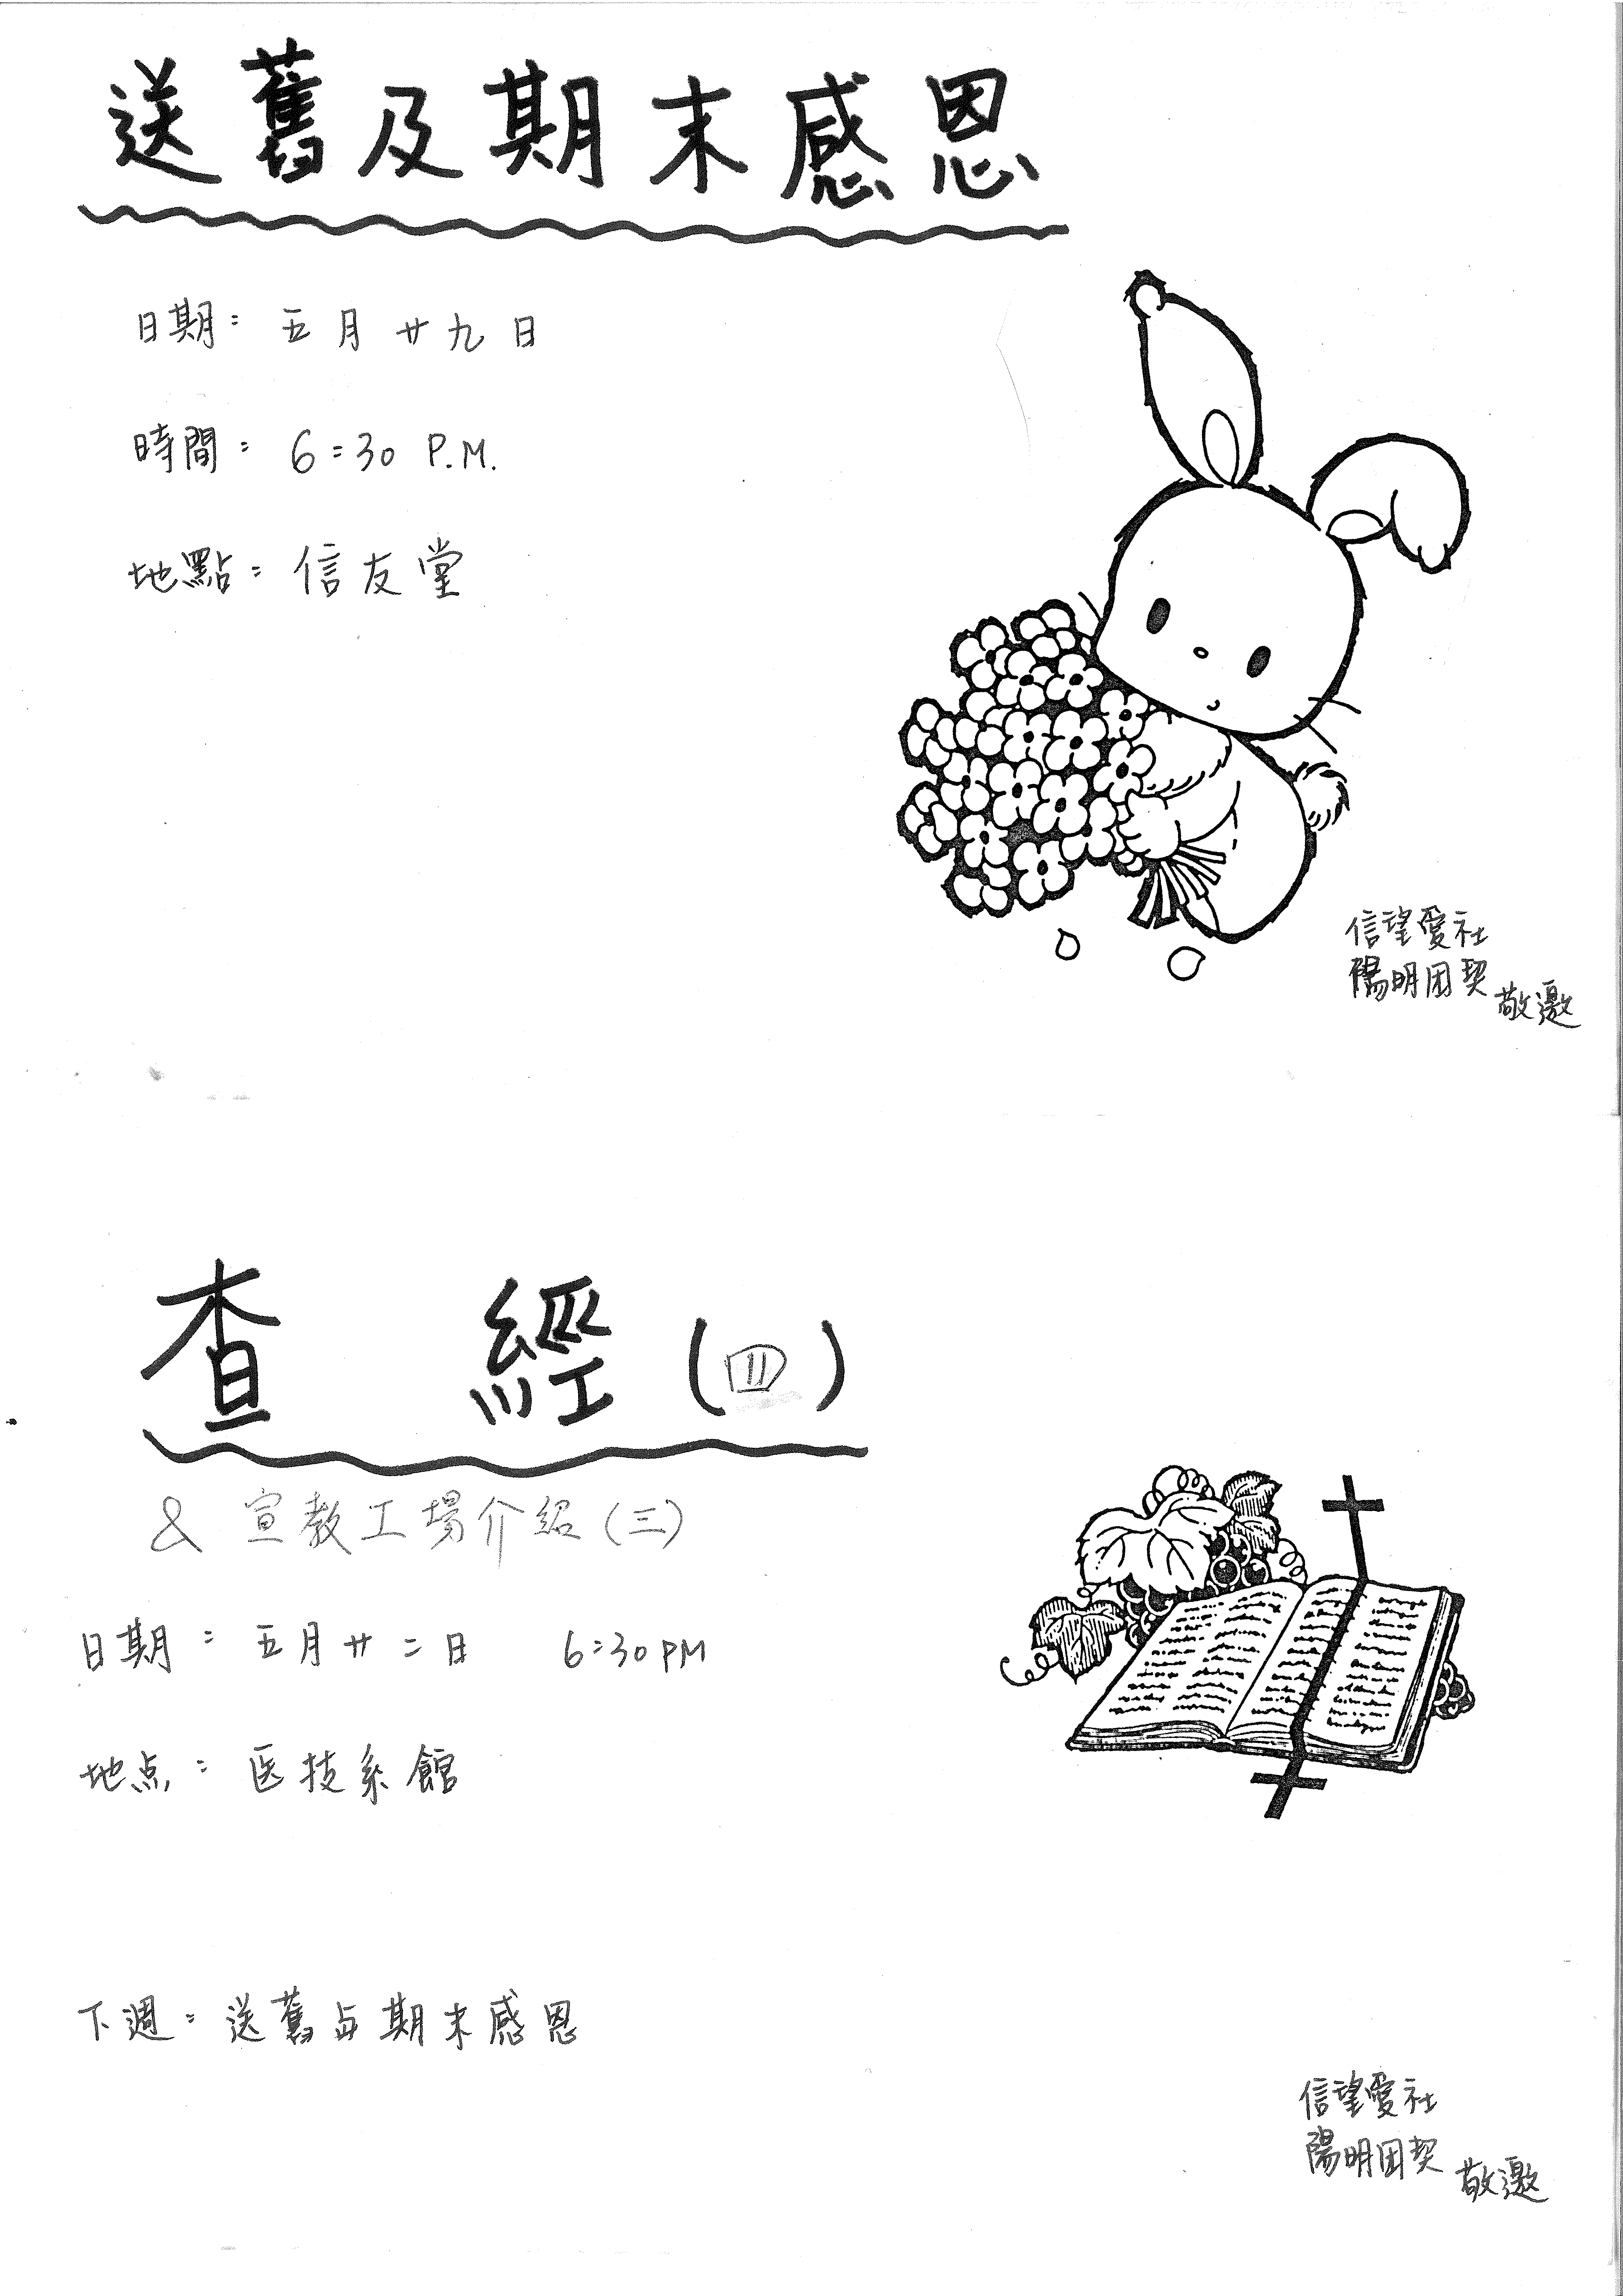 送舊及期末感恩
日期：五月廿九日
時間：6:30 P.M.
地點：信友堂
信望愛社
陽明团契
敬邀
查經(四)
& 宣教工場介紹(三)
日期：五月廿二日 6:30PM
地点：医技系館
下週：送舊与期末感恩
信望愛社
陽明团契
敬邀